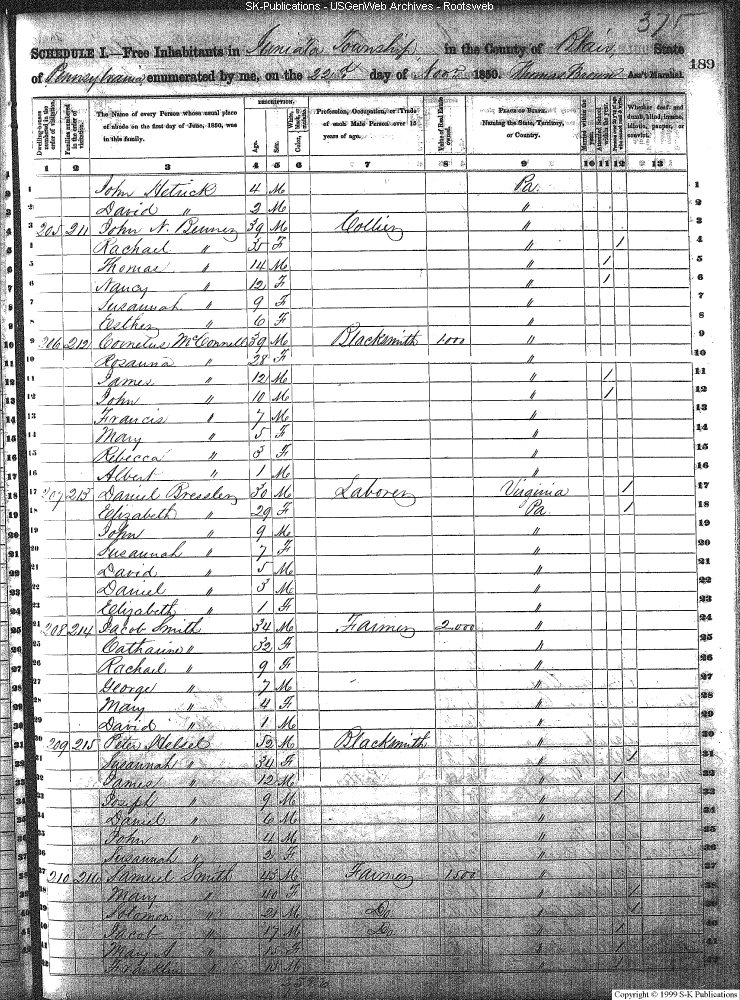 SK-Publications - USGenWeb Archives - Rootsweb
375
SCHEDULE I.—Free Inhabitants in Juniata Township in the County of Blair State
of Pennsylvania enumerated by me, on the 22nd day of Novr 1850. Thomas Brown Ass't Marshal. 189
Dwelling-houses numbered in the order of visitation. Families numbered in the order of visitation. The Name of every Person whose usual place of abode on the first day of June, 1850, was in this family. DESCRIPTION. Age. Sex. Color, White, black, or mulatto. Profession, Occupation, or Trade of each Male Person over 15 years of age. Value of Real Estate owned. PLACE OF BIRTH. Naming the State, Territory, or Country. Married within the year. Attended School within the year. Whether deaf and dumb, blind, insane, idiotic, pauper, or convict.
1 2 3 4 5 6 7 8 9 10 11 12 13
1 John Hetrick 4 M Pa. 1
2 David " 2 M " 2
3 205 211 John N. 39 M Collier " 3
4 Rachael " 35 F " / 4
5 Thomas " 14 M " / 5
6 Nancy " 12 F " / 6
7 Susannah " 9 F " 7
8 Esther " 6 F " 8
9 206 212 Cornelius McConnell 39 M Blacksmith 1000 " 9
10 Rosanna " 28 F " 10
11 James " 12 M " / 11
12 John " 10 M " / 12
13 Francis " 7 M " 13
14 Mary " 5 F " 14
15 Rebecca " 3 F " 15
16 Albert " 1 M " 16
17 207 213 Daniel Bressler 30 M Laborer Virginia / 17
18 Elizabeth " 29 F Pa. / 18
19 John " 9 M " 19
20 Susannah " 7 F " 20
21 David " 5 M " 21
22 Daniel " 3 M " 22
23 Elizabeth " 1 F " 23
24 208 214 Jacob Smith 34 M Farmer 2000 " 24
25 Catharine " 32 F " 25
26 Rachael " 9 F " 26
27 George " 7 M " 27
28 Mary " 4 F " 28
29 David " 1 M " 29
30 209 215 Peter Helsel 52 M Blacksmith " 30
31 Susannah " 34 F " / 31
32 James " 12 M " / 32
33 Joseph " 9 M " / 33
34 Daniel " 6 M " 34
35 John " 4 M " 35
36 Susannah " 2 F " 36
37 210 216 Samuel Smith 45 M Farmer 1500 " 37
38 Mary " 40 F " / 38
39 Solomon " 21 M Do " / 39
40 Jacob " 17 M Do " / 40
41 Mary A " 15 F " / 41
42 Franklin " 13 M " / 42
Copyright © 1999 S-K Publications